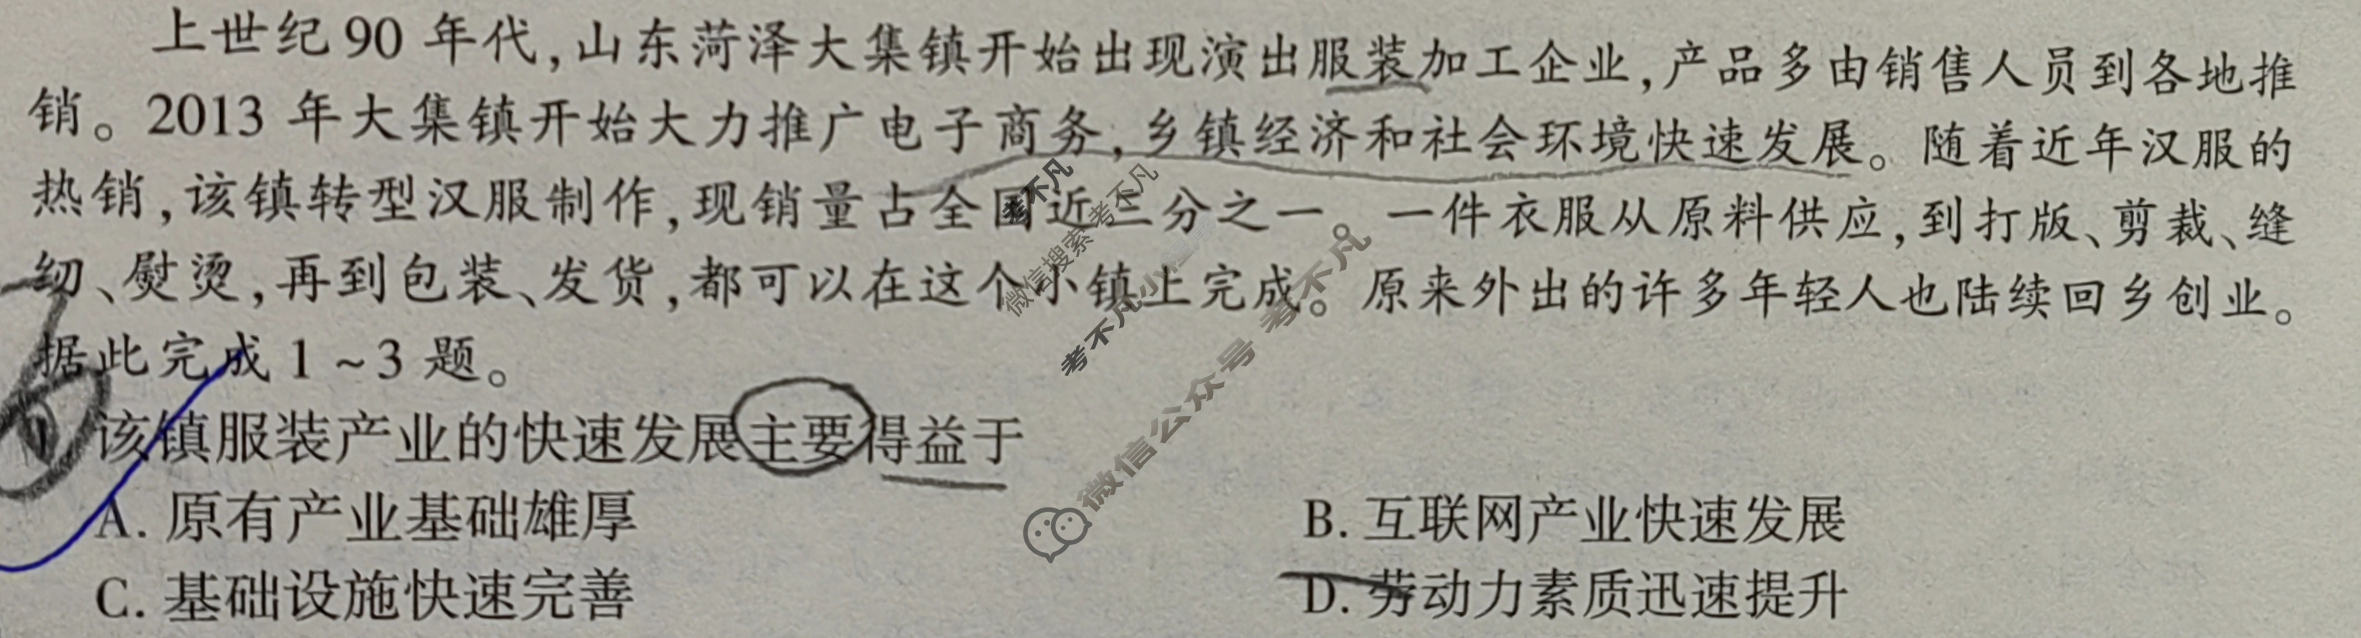 上世纪90年代,山东菏泽大集镇开始出现演出服装加工企业,产品多由销售人员到各地推
销。2013年大集镇开始大力推广电子商务,乡镇经济和社会环境快速发展。随着近年汉服的
热销,该镇转型汉服制作,现销量占全国近三分之一。一件衣服从原料供应,到打版、剪裁、缝
纫、熨烫,再到包装、发货,都可以在这个小镇上完成。原来外出的许多年轻人也陆续回乡创业。
据此完成1~3题。
1. 该镇服装产业的快速发展主要得益于
A. 原有产业基础雄厚
B. 互联网产业快速发展
C. 基础设施快速完善
D. 劳动力素质迅速提升
考不凡
微信搜索考不凡
考不凡小
微信公众号 考不凡